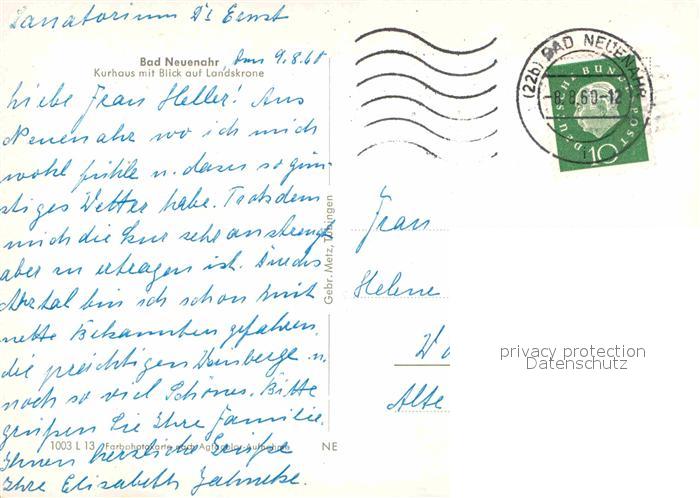 Sanatorium Dr Ernst
Bad Neuenahr, den 9.8.60
Kurhaus mit Blick auf Landskrone
Liebe Frau Heller! Aus
Neuenahr wo ich mich
wohl fühle u. dazu so gün-
stiges Wetter habe. Trotzdem
mich die Kur sehr anstrengt
aber zu ertragen ist. Durchs
Ahrtal bin ich schon mit
nette Bekannten gefahren,
die prächtigen Weinberge u.
noch so viel Schönes. Bitte
grüßen Sie Ihre Familie.
Ihnen herzliche Grüße
Ihre Elisabeth
1003 L 13 Farbphotokarte nach Agfacolor-Aufnahme
NE
Gebr. Metz, Tübingen
(22b) BAD NEUENAHR
-8.8.60-12
DEUTSCHE BUNDESPOST
10
Frau
Helene
Alte
privacy protection
Datenschutz